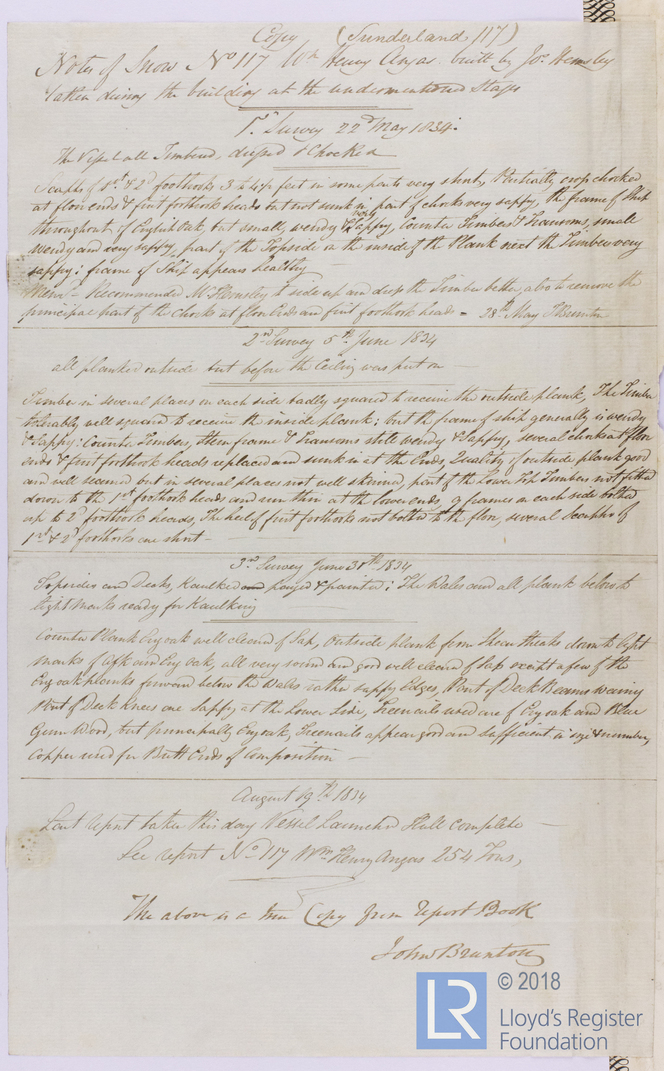 Copy (Sunderland 117)
Notes of Snow No 117 Wm Henry Angas built by Jos. Hemsley
taken during the building at the undermentioned Stages
1st Survey 22nd May 1834.
The Vessel all Timbered, dressed & Chocked
Scarphs of 1st & 2d foothooks 3 to 4½ feet in some parts very short, Partially crop chocked
at floor ends & first foothook heads but not sunk in, part of chocks very sappy, the frame of Ship
throughout of English Oak, but small, wendy & very Sappy, Counter Timbers & Transoms, small
wendy and very sappy, part of the Topside on the inside of the Plank next the Timbers very
sappy; frame of Ship appears healthy
Mem - Recommended Mr Hemsley to side up and dress the Timber better, also to remove the
principal part of the Chocks at floor Ends and first foothook heads = 28th May JBrunton
2nd Survey 5th June 1834
all planked outside but before the Ceiling was put on
Timber in several places on each side badly squared to receive the outside plank, The Timber
tolerably well squared to receive the inside plank; but the frame of ship generally is wendy
& Sappy: Counter Timbers, Stern frame & Transoms still wendy & Sappy, several chocks at floor
ends & first foothook heads replaced and sunk in at the Ends, Quality of outside plank good
and well seamed but in several places not well skinned, part of the Lower Timbers not fitted
down to the 1st foothook heads and run thin at the lower ends, 9 frames on each side bolted
up to 2d foothook heads, The heel of first foothooks not bolted to the floor, several Scarphs of
1st & 2d foothooks are short -
3rd Survey June 30th 1834
Topsides and Decks, Kaulked and payed & painted; The Wales and all plank below to
light Marks ready for Kaulking
Counter Plank Eng oak well cleared of Sap, Outside plank from Shear strakes down to light
marks of Afk and Eng oak, all very sound and good well cleared of sap except a few of the
Eng oak planks forward below the Wales rather sappy Edges, Part of Deck Beams wainy
Part of Deck knees are Sappy at the Lower Side, Treenails used are of Eng oak and Blue
Gum Wood, but principally Eng oak, Treenails appear good and sufficient in size & number,
Copper used for Butt Ends of Composition
August 19th 1834
Last report taken this day Vessel Launched Hull complete
See report No 117 Wm Henry Angas 254 Tons,
The above is a true Copy from Report Book
John Brunton
LR
© 2018
Lloyd's Register
Foundation